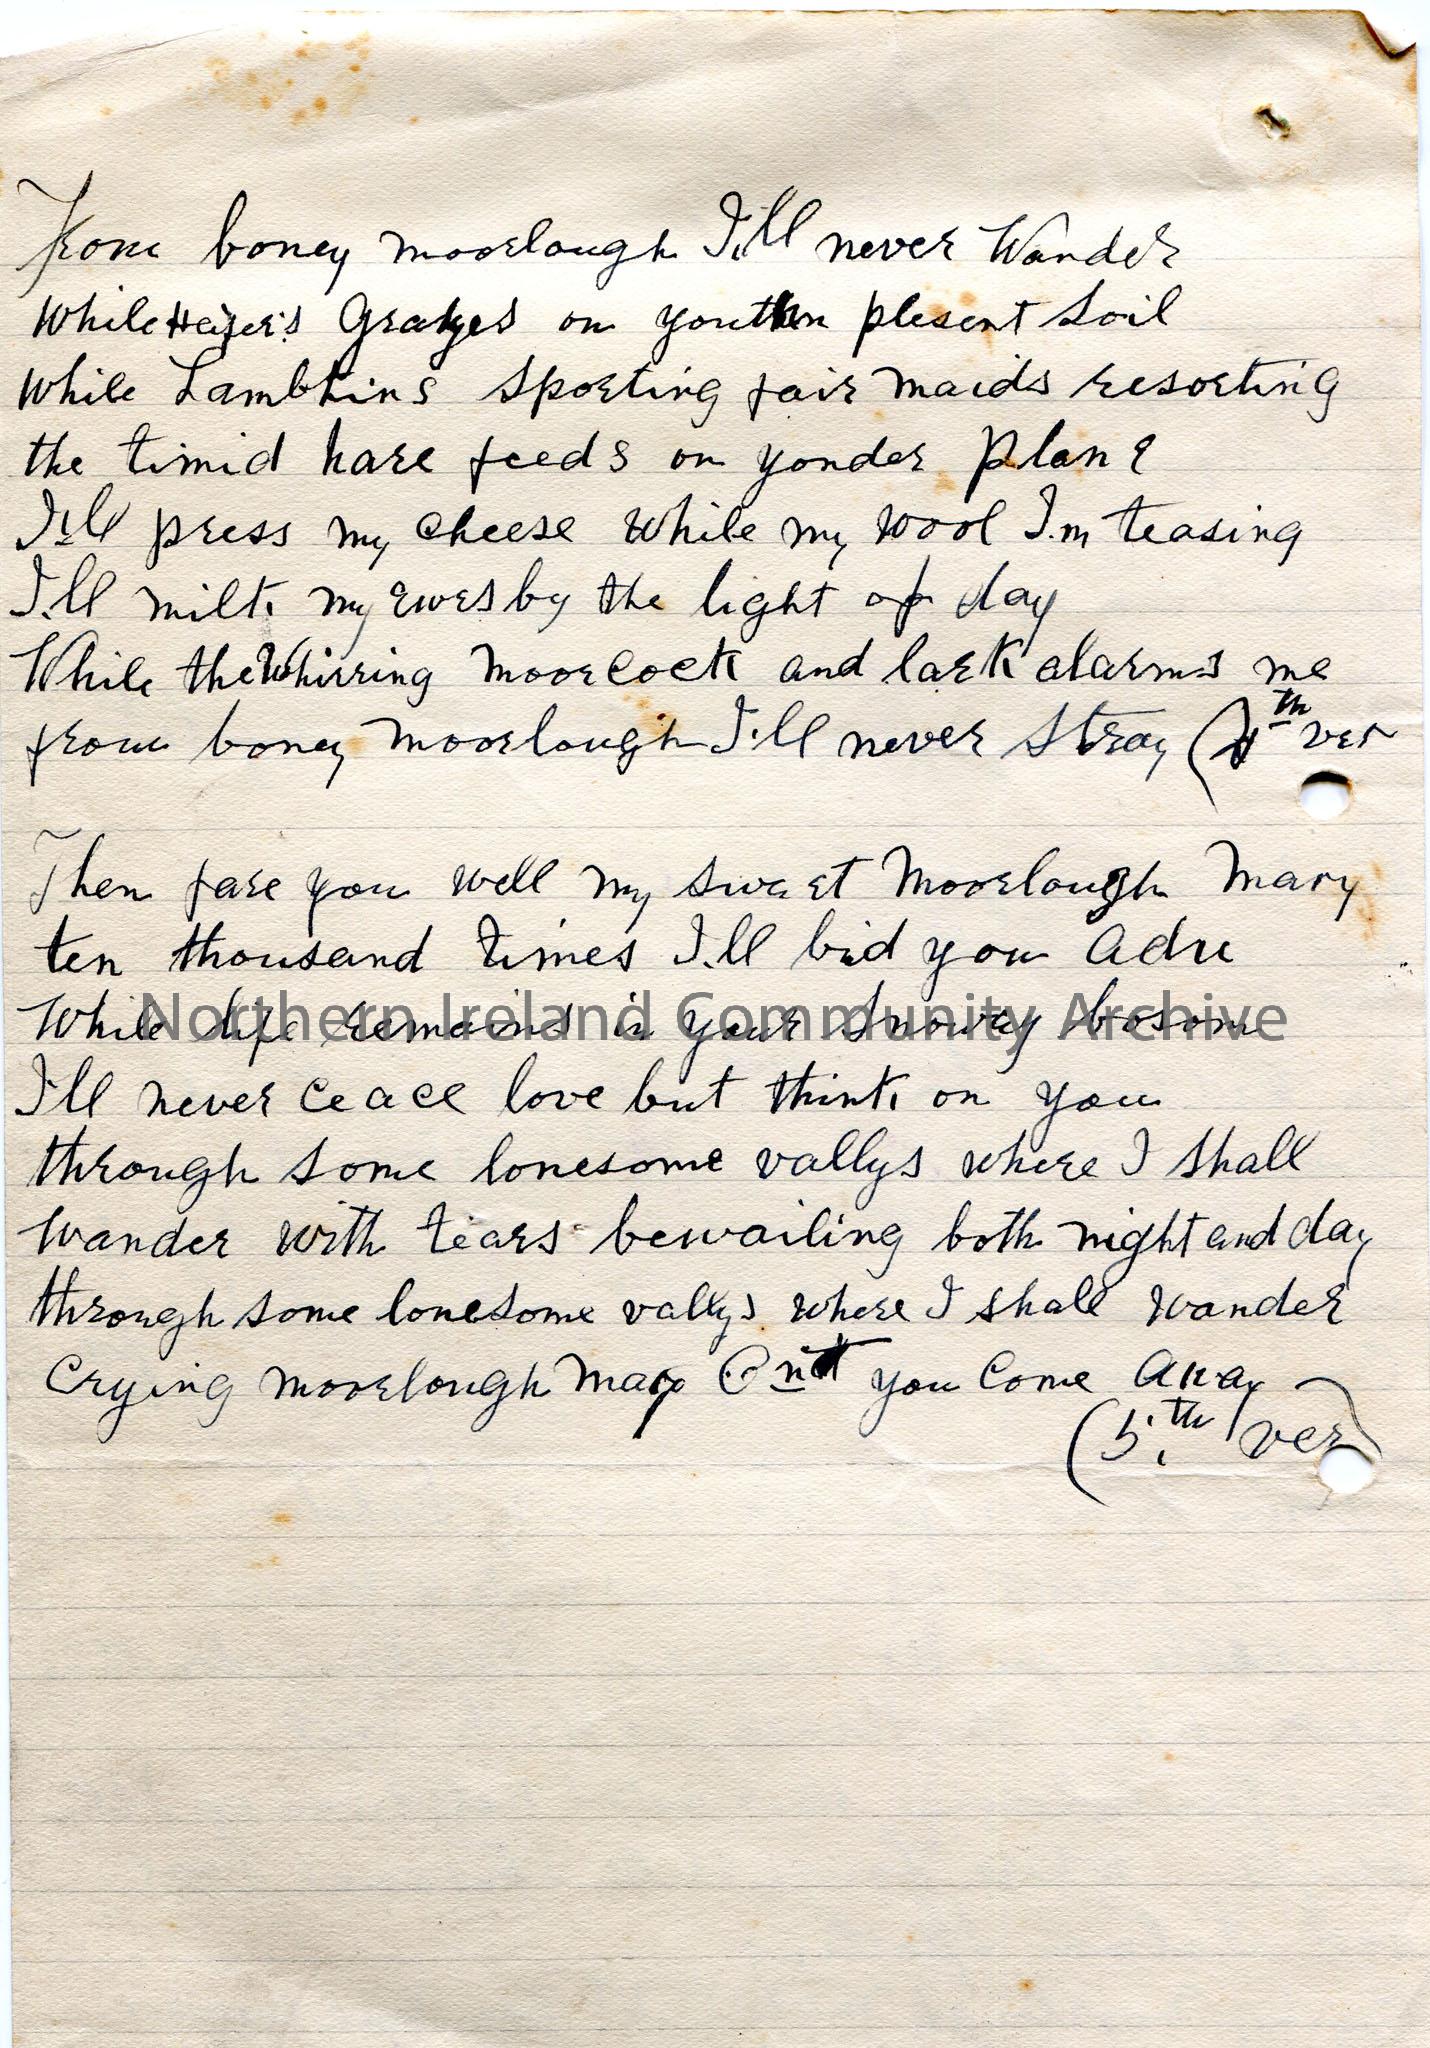 From boney moorlough I'll never Wander
While Heifer's Grazes on youthen plesent Soil
While Lambkins Sporting fair maids resorting
the timid hare feeds on yonder plane
I'll press my cheese While my wool I.m teasing
I.ll milk my ewes by the light of day
While the Whirring moorcock and lark alarms me
from boney moorlough I'll never Stray (4th ver
Then fare you well my sweet Moorlough Mary
ten thousand times I.ll bid you adu
While life remains in your Snowey bosom
I'll never ceace love but think on you
through some lonesome vallys where I shall
Wander with tears bewailing both night and day
through some lonesome vallys where I shall wander
Crying moorlough Mary you come away
(5.th ver)
Northern Ireland Community Archive